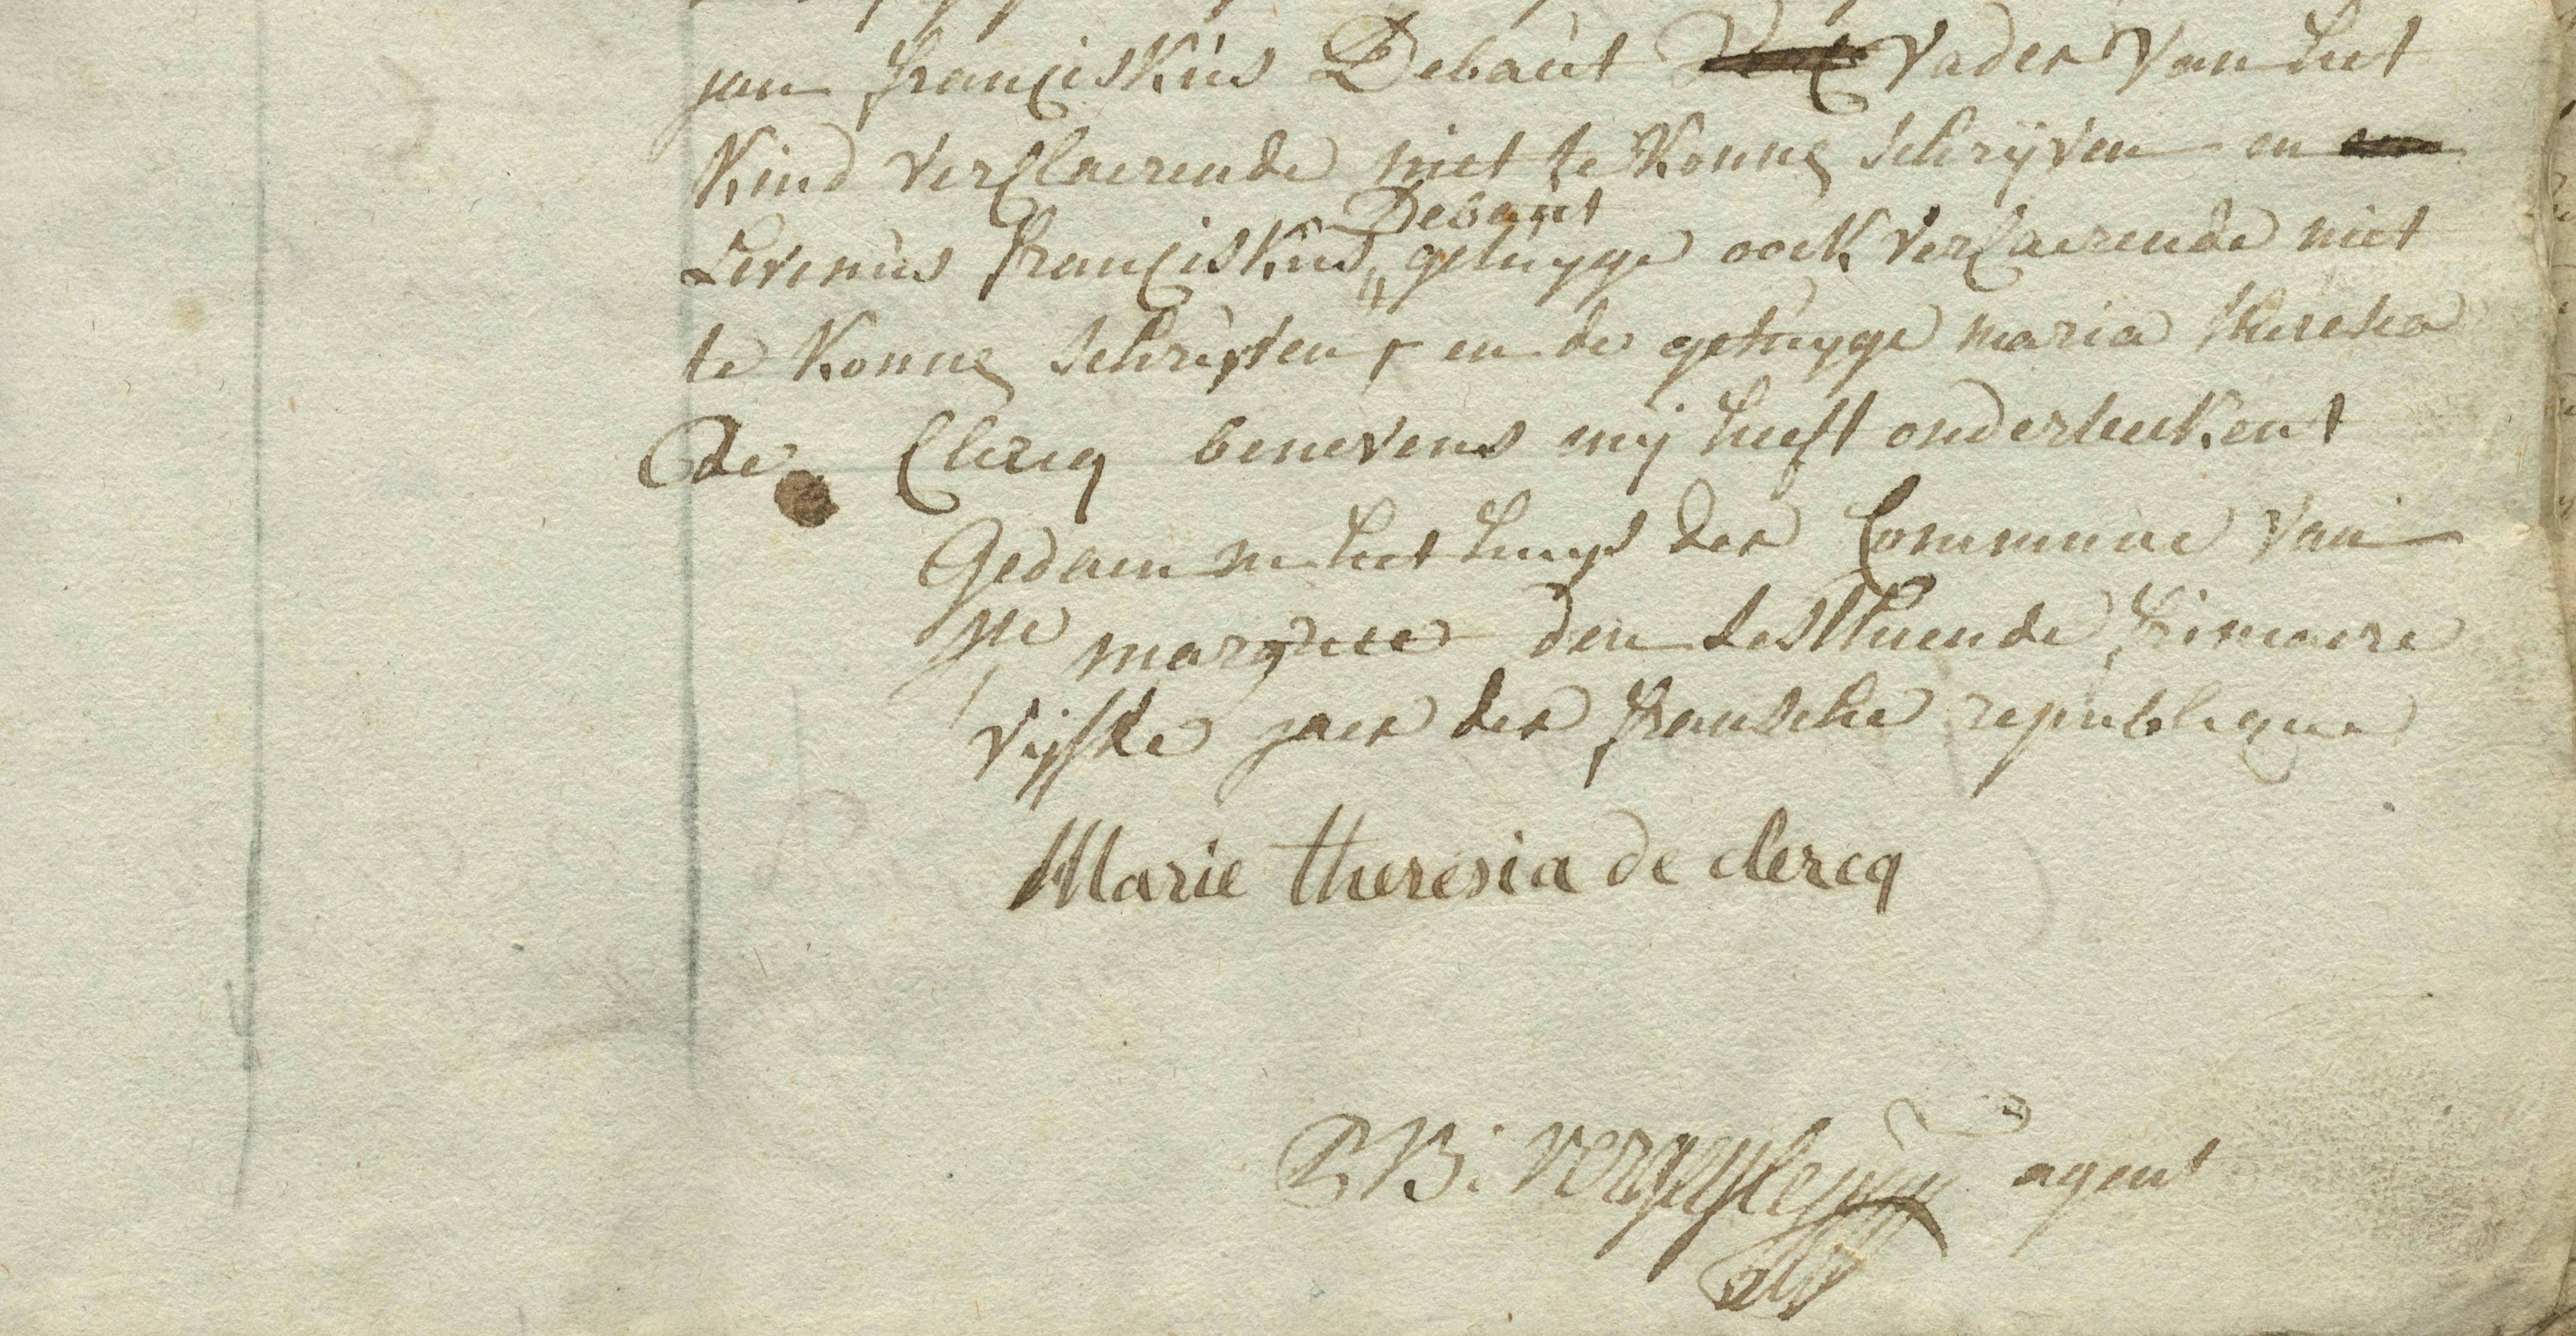 jan franciskús Debaút vader van het
Kind verclaerende niet te Konne schrijven en
Levinús franciskús Debaút getuÿge oock verclaerende niet
te Konne schrijven, en de getuijge maria theresia
de Clercq benevens mij heeft onderteekent
Gedaen in het huys der Commúne van
Ste marguerite den sesthiende frimaire
vijfde jaer der fransche republique
Marie theresia de clercq
P: B: agent